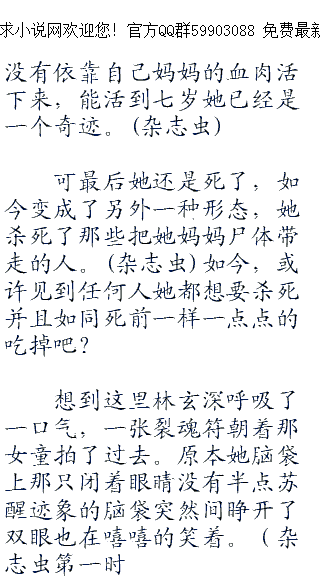 求小说网欢迎您！官方QQ群59903088 免费最新
没有依靠自己妈妈的血肉活
下来，能活到七岁她已经是
一个奇迹。(杂志虫)
可最后她还是死了，如
今变成了另外一种形态，她
杀死了那些把她妈妈尸体带
走的人。(杂志虫)如今，或
许见到任何人她都想要杀死
并且如同死前一样一点点的
吃掉吧？
想到这里林玄深呼吸了
一口气，一张裂魂符朝着那
女童拍了过去。原本她脑袋
上那只闭着眼睛没有半点苏
醒迹象的脑袋突然间睁开了
双眼也在嘻嘻的笑着。（杂
志虫第一时